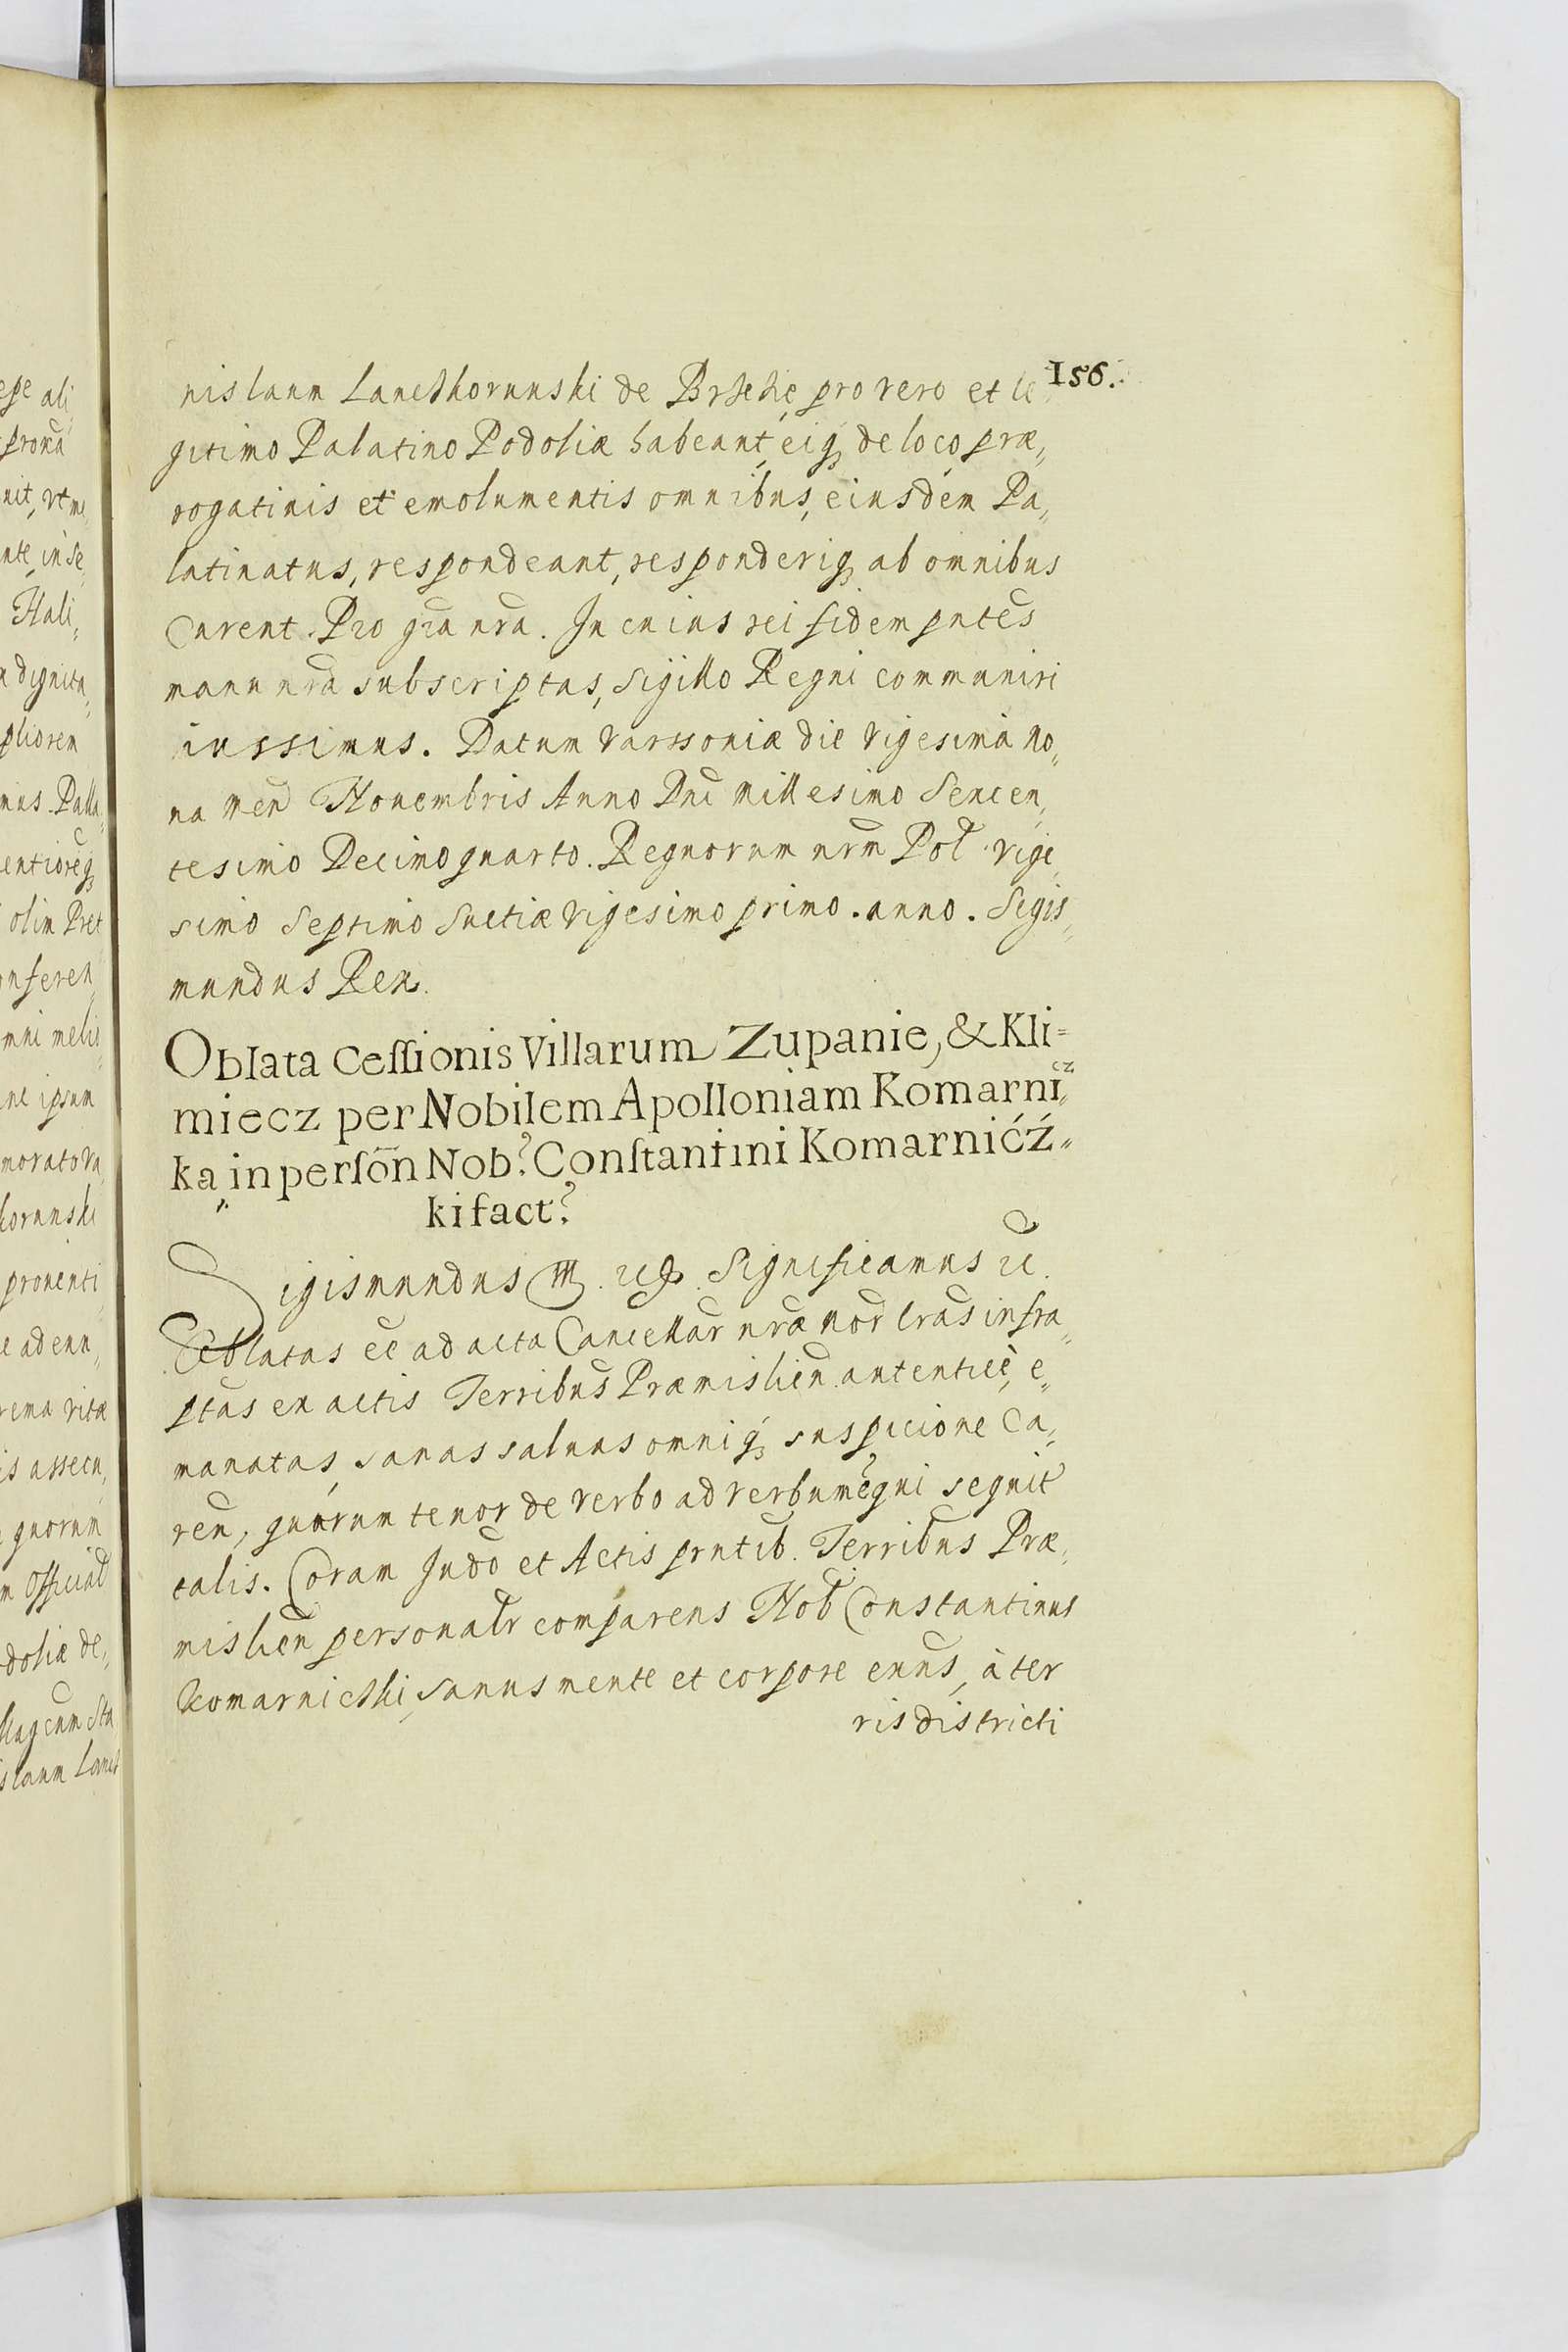 156.
nislaum Lanckhorunski de Brzezie pro vero et le
gitimo Palatino Podoliæ habeant, eiq; de loco præ„
rogatiuis et emolumentis omnibus, eiusdem Pa„
latinatus, respondeant, responderiq; ab omnibus
Curent. Pro gra nra. In cuius rei fidem pntes
manu nra subscriptas, Sigillo Regni communiri
iussimus. Datum Varssoniæ die vigesima no„
na Men Nouembris Anno Dni Millesimo Sexcen„
tesimo Decimoquarto. Regnorum nrm Pol. vige„
simo Septimo Suetiæ vigesimo primo. anno. Sigis„
mundus Rex.
Oblata Ceſſionis Villarum Zupanie, & Kli=
miecz per Nobilem Apolloniam Komarni„cz
ka in perſon Nob: Conſtantini Komarnićź„
ki fact:
Sigismundus III. Significamus
Oblatas ee ad acta Cancellar nræ Mor lras infra„
ptas ex actis Terribus Præmislien autenticè, e„
manatas, sanas saluas omniq; suspicione Ca„
ren, quorum tenor de verbo ad verbum sequit
talis. Coram Judo et Actis prntib. Terribus Præ„
mislien personalr comparens Nob Constantinus
Komarnicki, sanus mente et corpore exns, à ter
ris districti